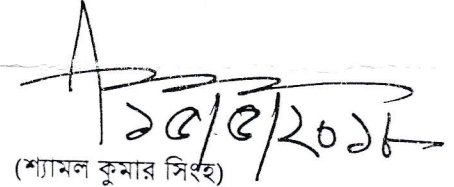 ১৫/৫/২০১৮
(শ্যামল কুমার সিংহ)